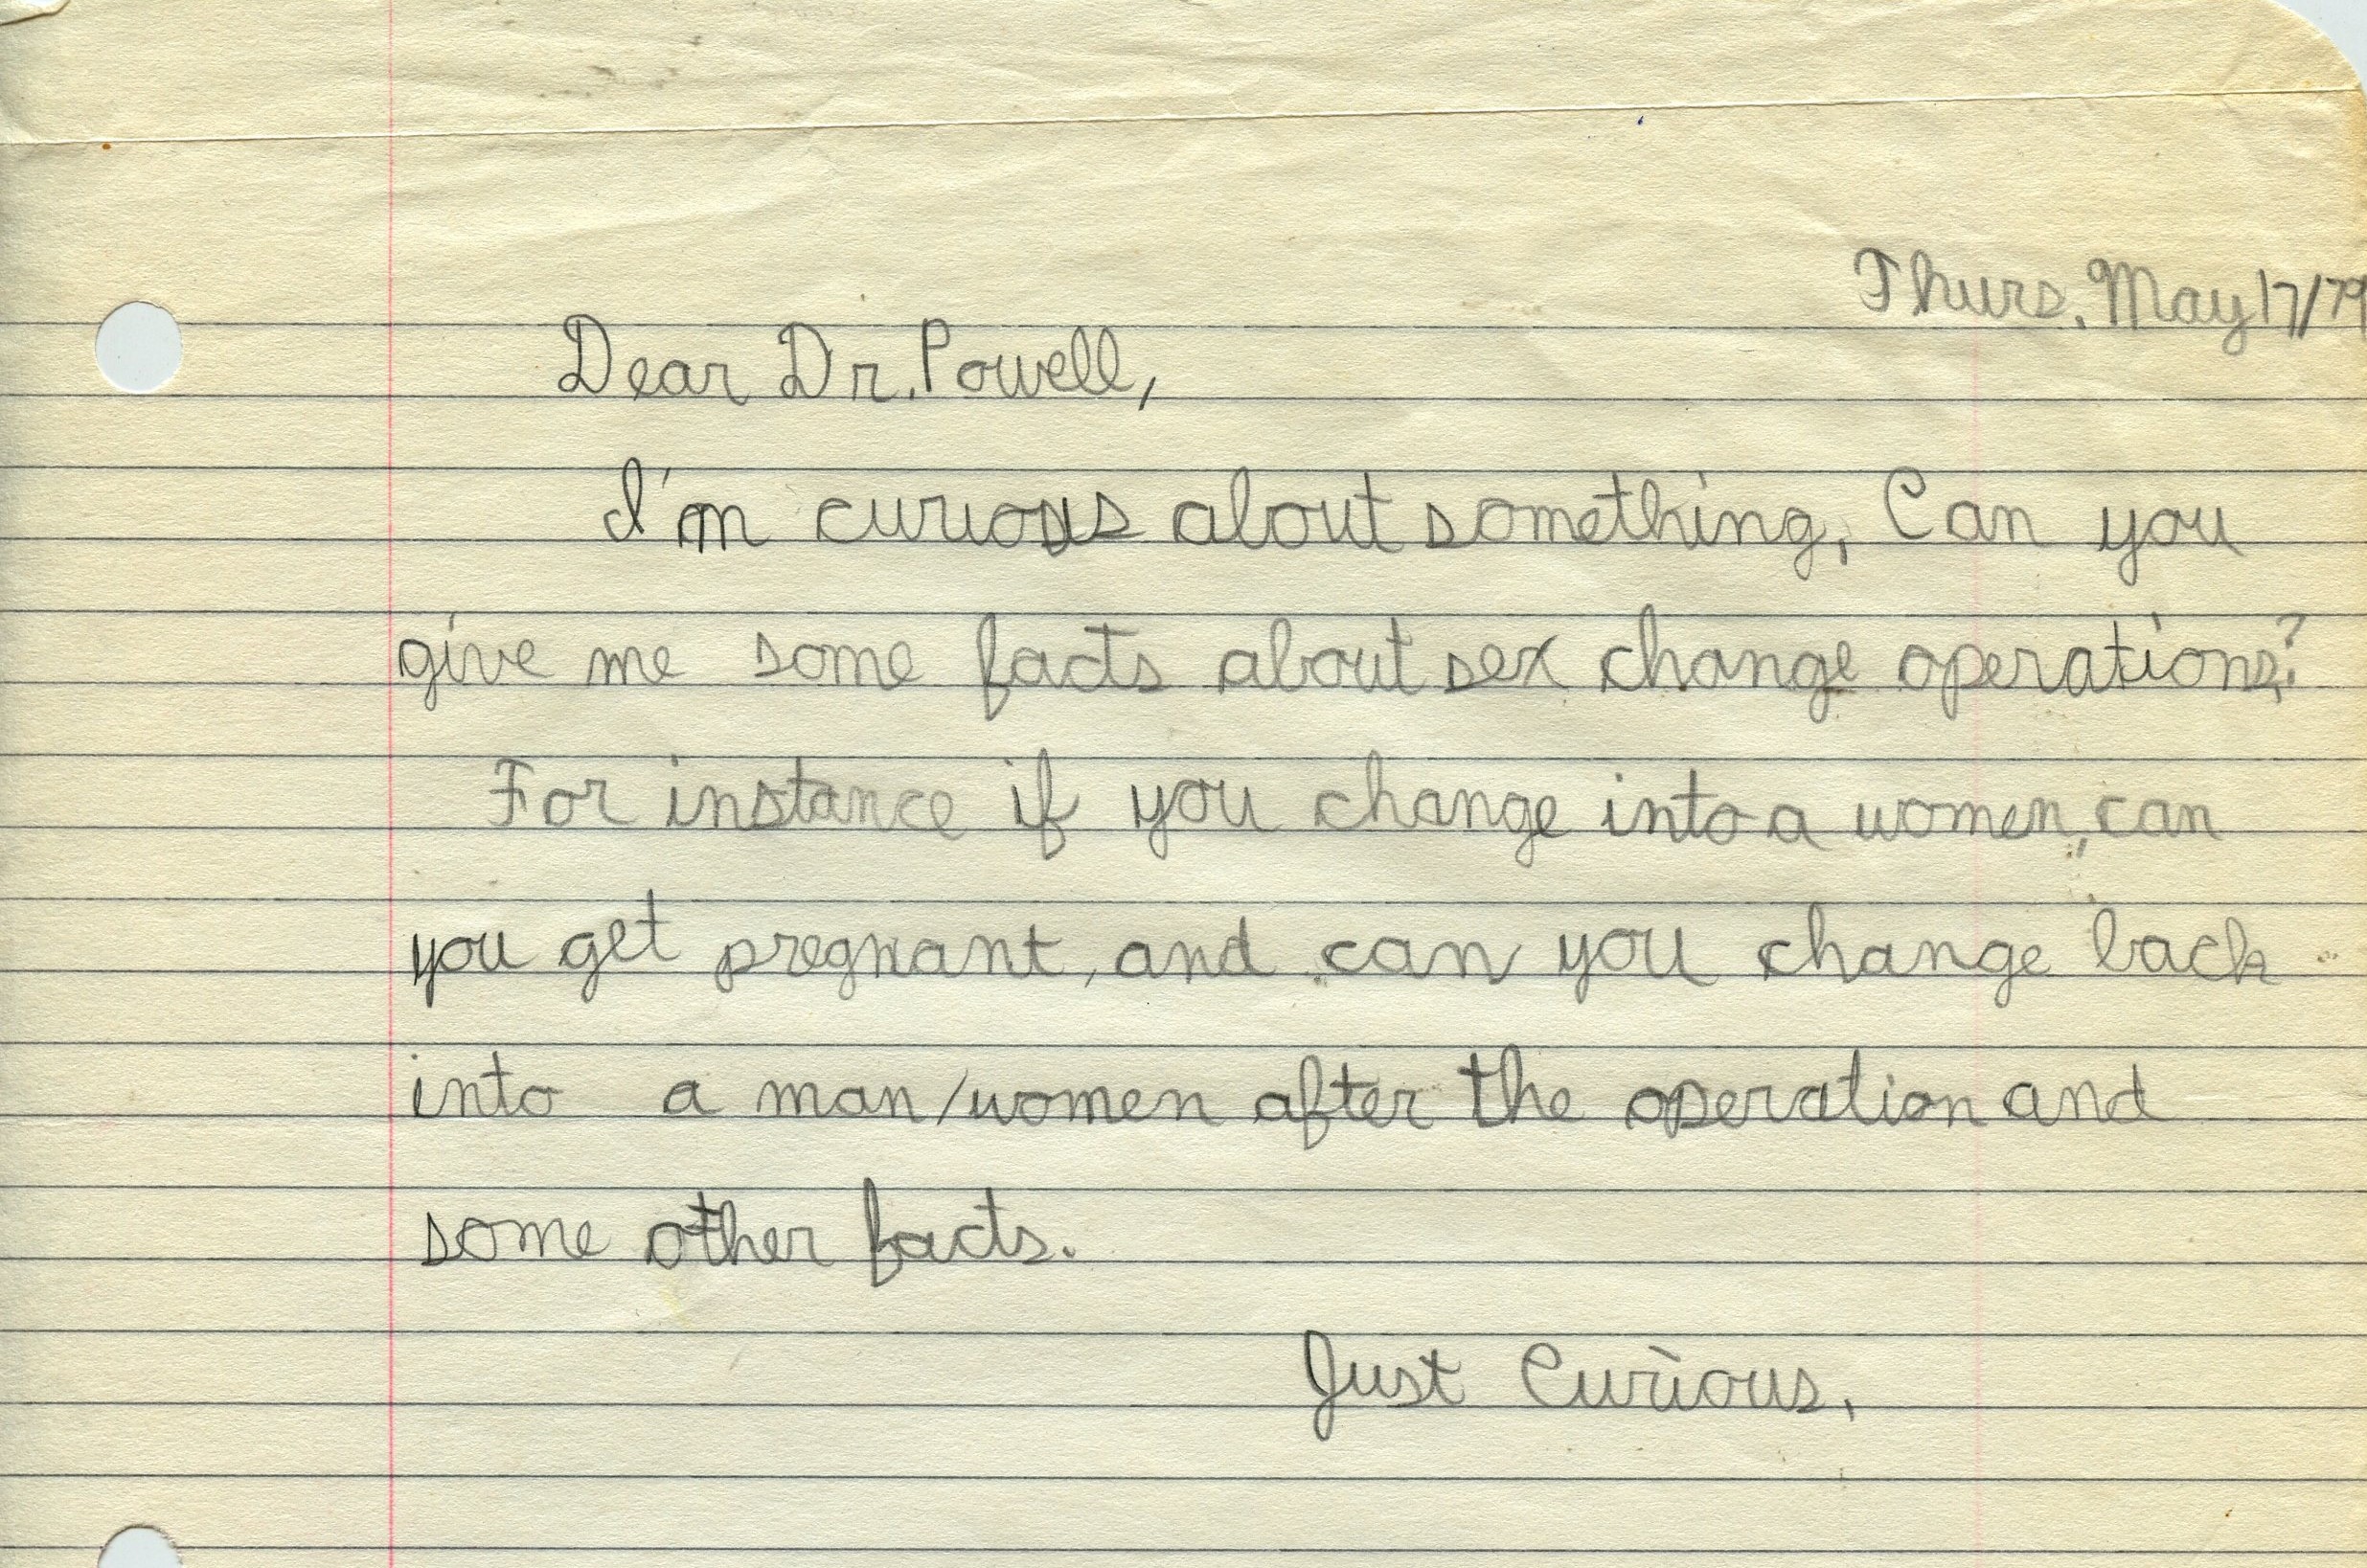 Thurs. May 17/79
Dear Dr. Powell,
I'm curious about something, Can you
give me some facts about sex change operations?
For instance if you change into a women, can
you get pregnant, and can you change back
into a man/women after the operation and
some other facts.
Just Curious,